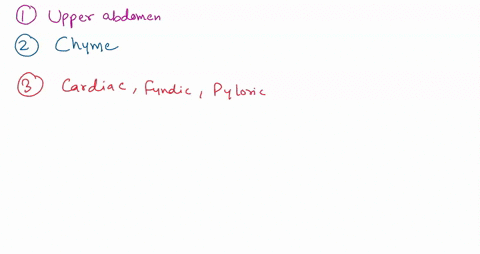 ① Upper abdomen
② Chyme
③ Cardiac, Fundic, Pyloric